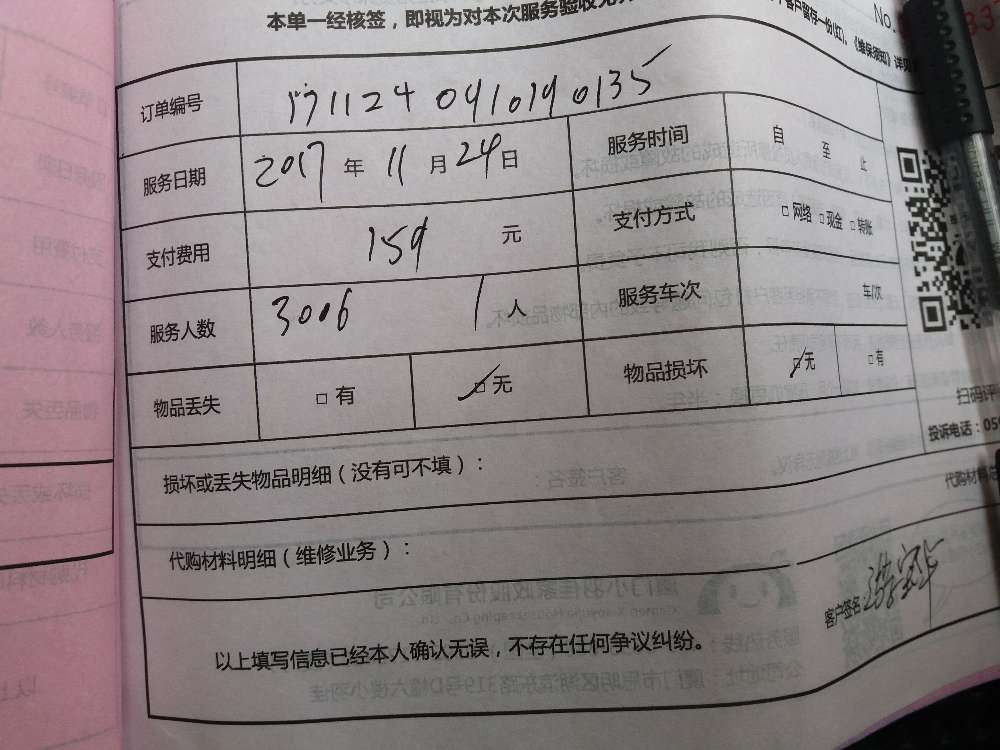 本单一经核签，即视为对本次服务验收无
客户留存一份(红)，《维保须知》详见
No.
订单编号 171124 0910190135
服务日期 2017 年 11 月 24 日 服务时间 自 至 止
支付费用 159 元 支付方式 □ 网络 □ 现金 □ 转账
服务人数 3006 1 人 服务车次 车/次
物品丢失 □ 有 □ 无 物品损坏 □ 无 □ 有
扫码评
投诉电话：059
损坏或丢失物品明细（没有可不填）：
代购材料
代购材料明细（维修业务）：
客户签名：
以上填写信息已经本人确认无误，不存在任何争议纠纷。